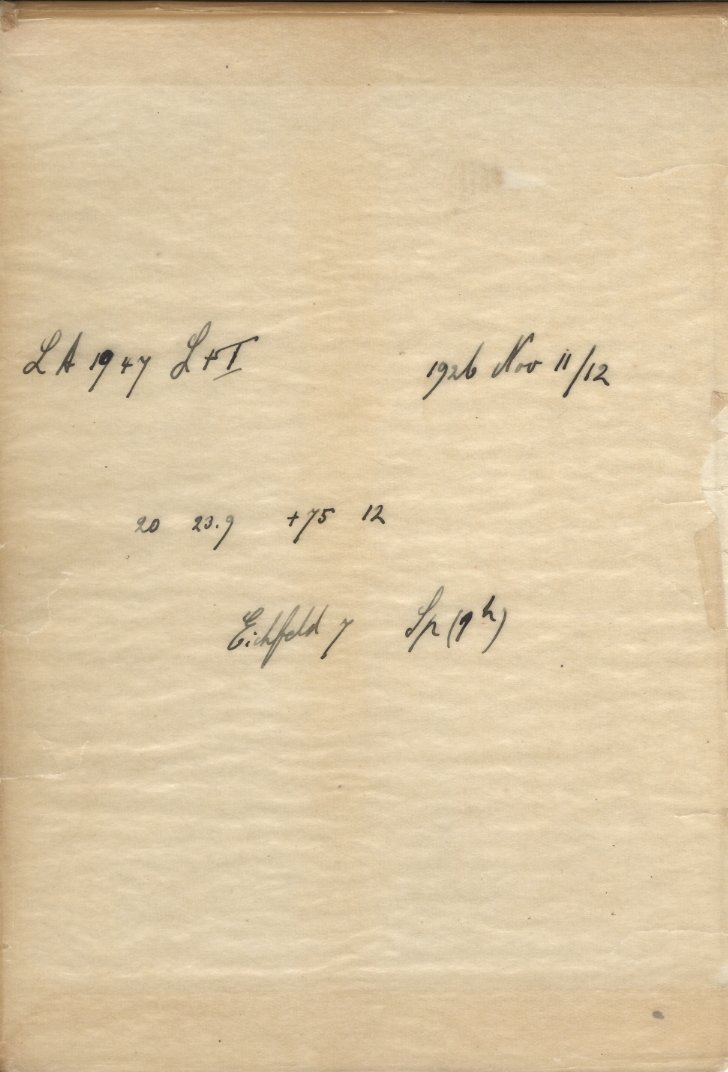 LA 1947 L+I 1926 Nov 11/12
20 23.9 +75 12
Eichfeld 7 Sp (9h)